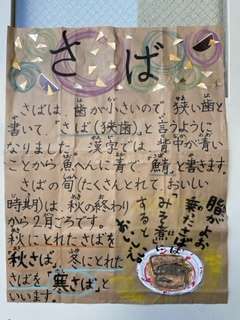 さば
さばは、歯が小さいので、狭い歯と
書いて、「さば(狭歯)」と言うように
なりました。漢字では、背中が青い
ことから魚へんに青で「鯖」と書きます。
さばの旬(たくさんとれて、おいしい
時期)は、秋の終わり
から2月ごろです。
秋にとれたさばを
「秋さば」、冬にとれ
たさばを「寒さば」と
いいます。
脂がよくお
乗ったさば
「みそ煮」に
すると
おいしいよ